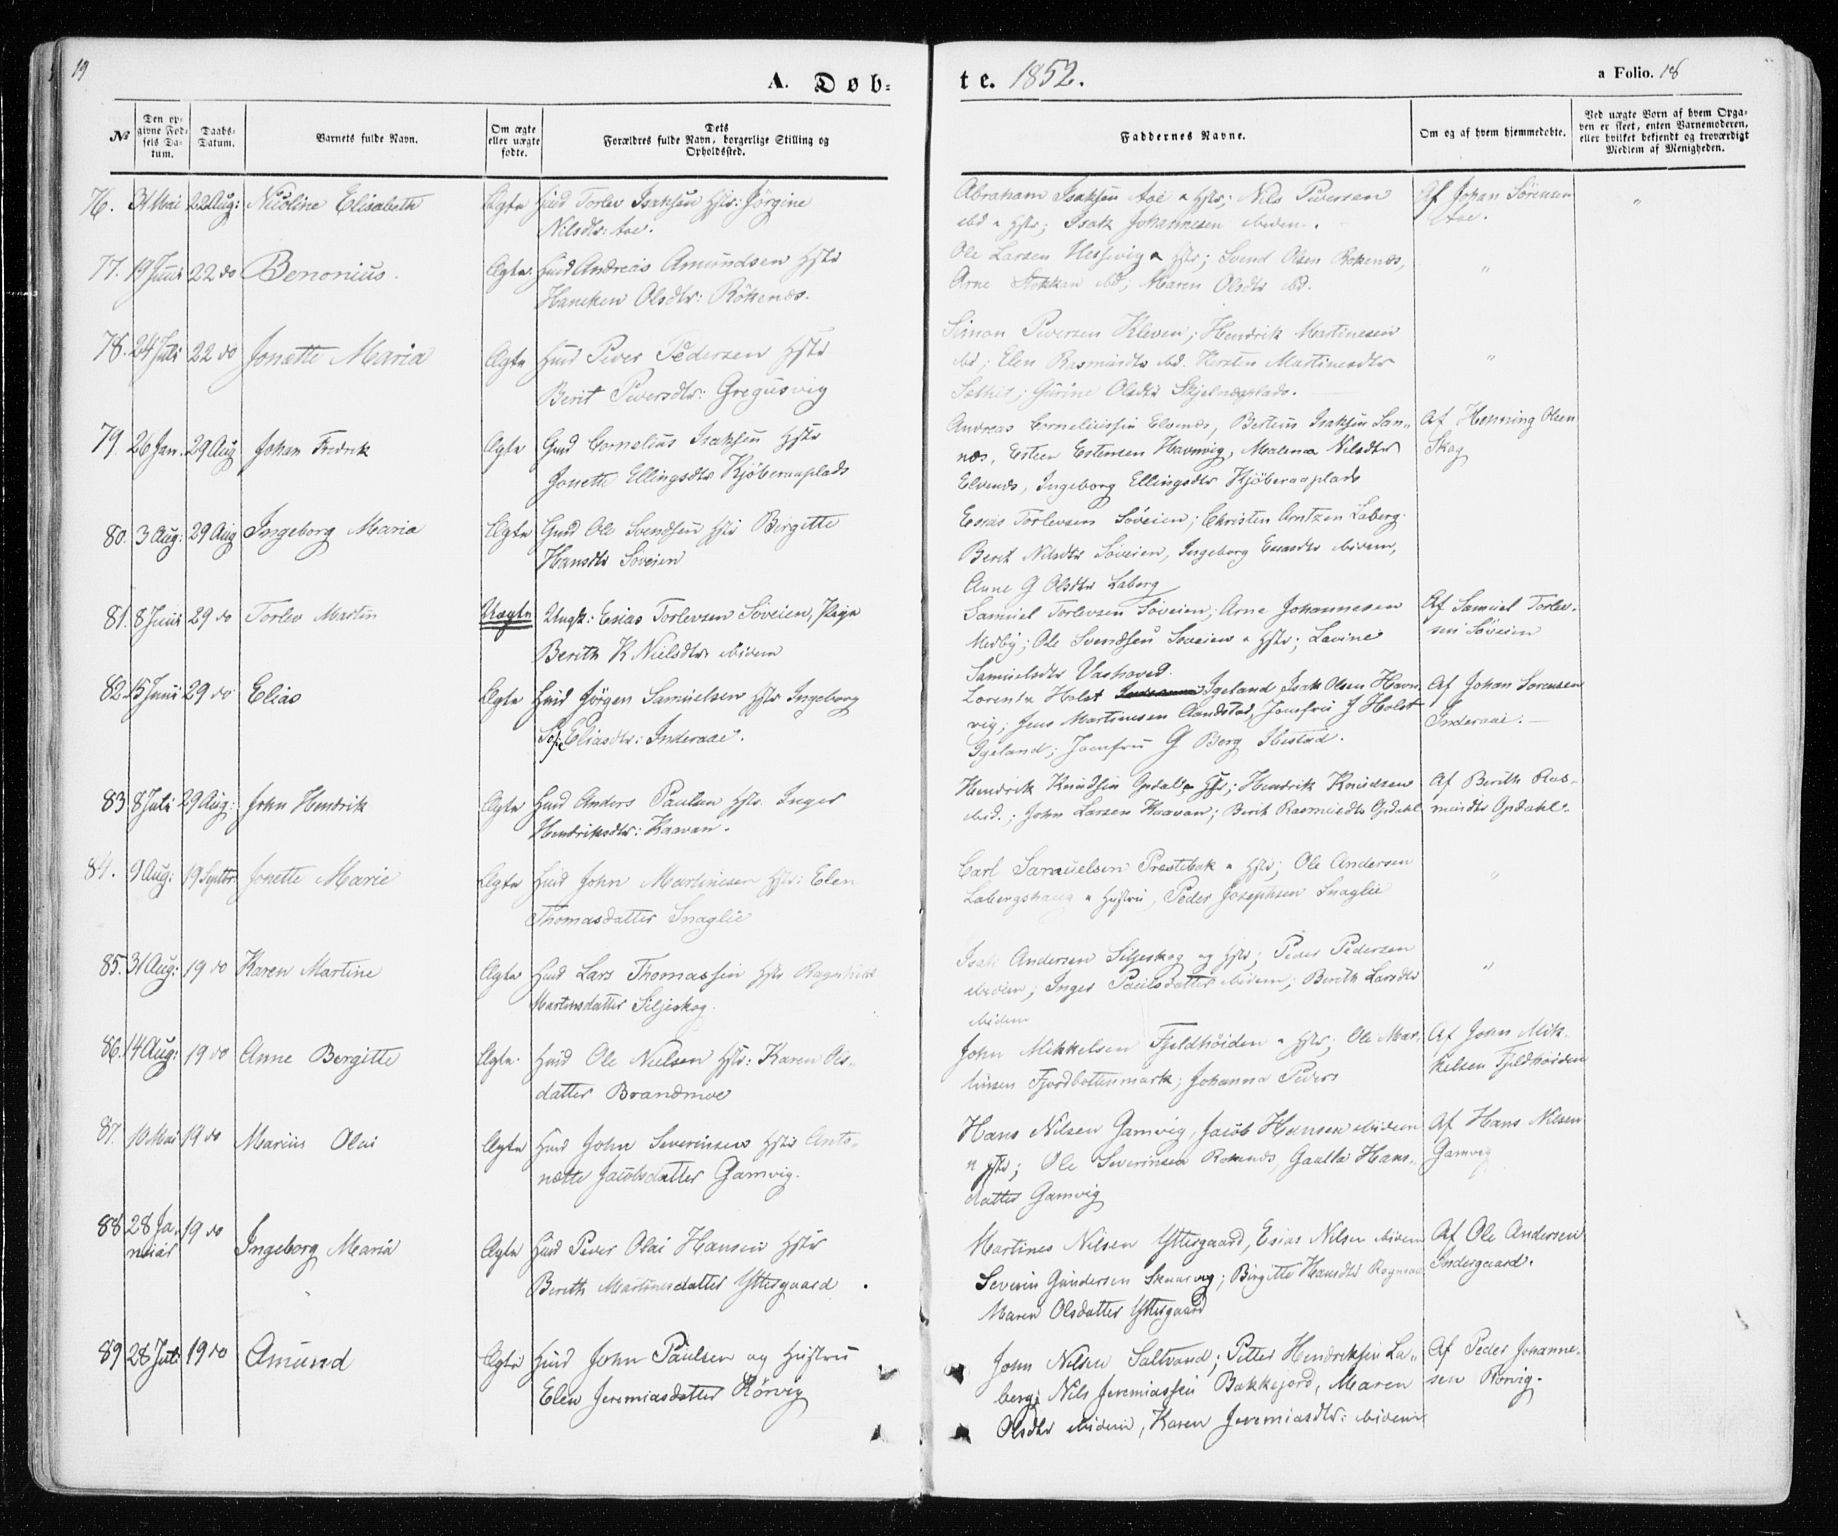 19
A. Døb=
te. 1852.
a Folio. 18
№
Den opgivne Fødsels Datum.
Daabs-Datum.
Barnets fulde Navn.
Om ægte eller uægte fødte.
Dets Forældres fulde Navn, borgerlige Stilling og Opholdssted.
Faddernes Navne.
Om og af hvem hjemmedøbte.
Ved uægte Børn af hvem Opgaven er skeet, enten Barnemoderen, eller hvilket bekjendt og troværdigt Medlem af Menigheden.
76. 31 Mai 22 Aug: Nicoline Elisabeth Ægte Huid Torlev Isaksen Hstr: Jørgine
Nilsdtr: Aae.
Abraham Isaksen Aae n Hstr; Nils Siversen
ibd n Hstr; Isak Johannesen ibidem.
Af Johan Sørensen
Aae.
"
77. 19 Juni 22 do Benonius. Ægte Huid Andreas Amundsen Hstr
Hancken Olsdtr: Rökenæs.
Ole Larsen Hessevig n Hstr; Svend Olsen Rökenæs,
Arne Stokkan ibd; Maren Olsdtr ibd.
"
78. 24 Juli 22 do Jonette Maria Ægte Huid Peder Pedersen Hstr
Berit Siversdtr: Gregusvig
Simon Siversen Kleven; Hendrik Martinesen
ibd; Elen Rasmusdtr ibd. Kirsten Martinesdtr
; Gurine Olsdtr
"
79. 26 Jan. 29 Aug Johan Fredrik Ægte Huid Cornelius Isaksen Hstr
Jonette Ellingsdtr Kjöberaaplads
Andreas Corneliussen Elvenæs, Berteus Isaksen San-
næs, Esten Estensen Havnvig, Malena Nilsdtr
Elvenæs, Ingeborg Ellingsdtr Kjöberaaplads
Af Henning Olsen
Skog
80. 3 Aug: 29 Aug Ingeborg Maria Ægte Huid Ole Svendsen Hstr Birgitte
Hansdtr Söveien
Esaias Torlevsen Söveien; Christen Arntzen Laberg.
Berit Nilsdtr Söveien, Ingeborg Esaiasdtr ibidem,
Anne G Olsdtr Laberg
81. 8 Juni 29 do Torlev Martin Uægte Ungk: Esias Torlevsen Söveien, Pige
Berith K Nielsdtr ibidem
Samuel Torlevsen Söveien; Arne Johannesen
Medby; Ole Svendsen Söveien n Hstr; Lavine
Samuelsdtr Vashoved.
Af Samuel Torlev-
sen Söveien
82. 15 Juni 29 do Elias Ægte Huid Jörgen Samuelsen Hstr Ingeborg
Sofie Eliasdtr: Inderaae.
Lorentz Holst Igeland, Isak Olsen Havn-
vig; Jens Martinesen Aandstad, Jomfru J Holst
Igeland; Jomfru G Berg Ibestad.
Af Johan Sörensen
Inderaae.
83 8 Juli 29 Aug: John Hendrik Ægte Huid Anders Paulsen Hstr. Inger
Hendriksdtr: Kaavan.
Hendrik Knudsen Opdal n Hstr; Hendrik Knudsen
ibid.; John Larsen Kaavan; Berit Rasmusdtr Opdahl
Af Berith Ras-
musdtr Opdahl.
84. 9 Aug: 19 Septbr Jonette Marie Ægte Huid John Martinesen Hstr: Elen
Thomasdatter Snaglie
Carl Samuelsen Prestebak n Hstr; Ole Andersen
Labergshaug n Hustru; Peder Josephsen Snaglie
"
85. 31 Aug: 19 do Karen Martine Ægte Huid Lars Thomassen Hstr Ragnhild
Martinsdatter Siljeskog.
Isak Andersen Siljeskog og Hstr; Peder Pedersen
ibidem; Inger Paulsdatter ibidem; Berith Larsdtr
ibidem
"
86. 14 Aug: 19 do Anne Bergitte Ægte. Huid Ole Nielsen Hstr: Karen Ols-
datter Brandmoe
John Mikkelsen Fjeldhöiden n Hstr; Ole Mar-
tinsen Fjordbottenmark; Johanna Peders
Af John Mik-
kelsen Fjeldhöiden
87. 10 Mai 19 do Marius Olai Ægte Huid John Severinsen Hstr Anto-
nette Jacobsdatter Gamvig.
Hans Nilsen Gamvig, Jacob Hansen ibidem
n Hstr; Ole Severinsen Rökenæs, Gaalla Hans-
datter Gamvig
Af Hans Nilsen
Gamvig
88 28 Ja- 19 do
nuar
Ingeborg Maria Ægte Huid Peder Olai Hansen Hstr
Berith Martinesdatter Yttergaard
Martines Nilsen Yttergaard, Esias Nilsen ibidem
Severin Gundersen Skaarvig; Birgitte Hansdtr
Maren Olsdatter Yttergaard
Af Ole Andersen
Indergaard.
89 28 Juli 19 do Amund Ægte Huid John Paulsen og Hustru
Elen Jeremiasdatter Rörvig
John Nilsen Saltvand; Petter Hendriksen La-
berg; Nils Jeremiassen Bakkejord, Maren
Olsdtr ibidem, Karen Jeremiasdtr: ibidem
Af Peder Johanne-
sen Rörvig.